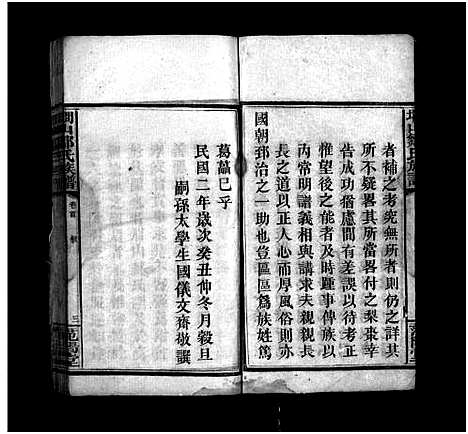 者補之考究無所者則仍之詳其
所不疑畧其所當畧付之梨棗幸
告成功猶慮間有差誤以待考焉
惟望後之能者及時踵事傳族以
丙常明譜義相與講求夫親親長
長之道以正人心而厚風俗則亦
國朝郅治之一助也豈區區為族姓篤
葛藟已乎
民國二年歲次癸丑仲冬月穀旦
嗣孫太學生國儀文齋敬譔
卷首
三